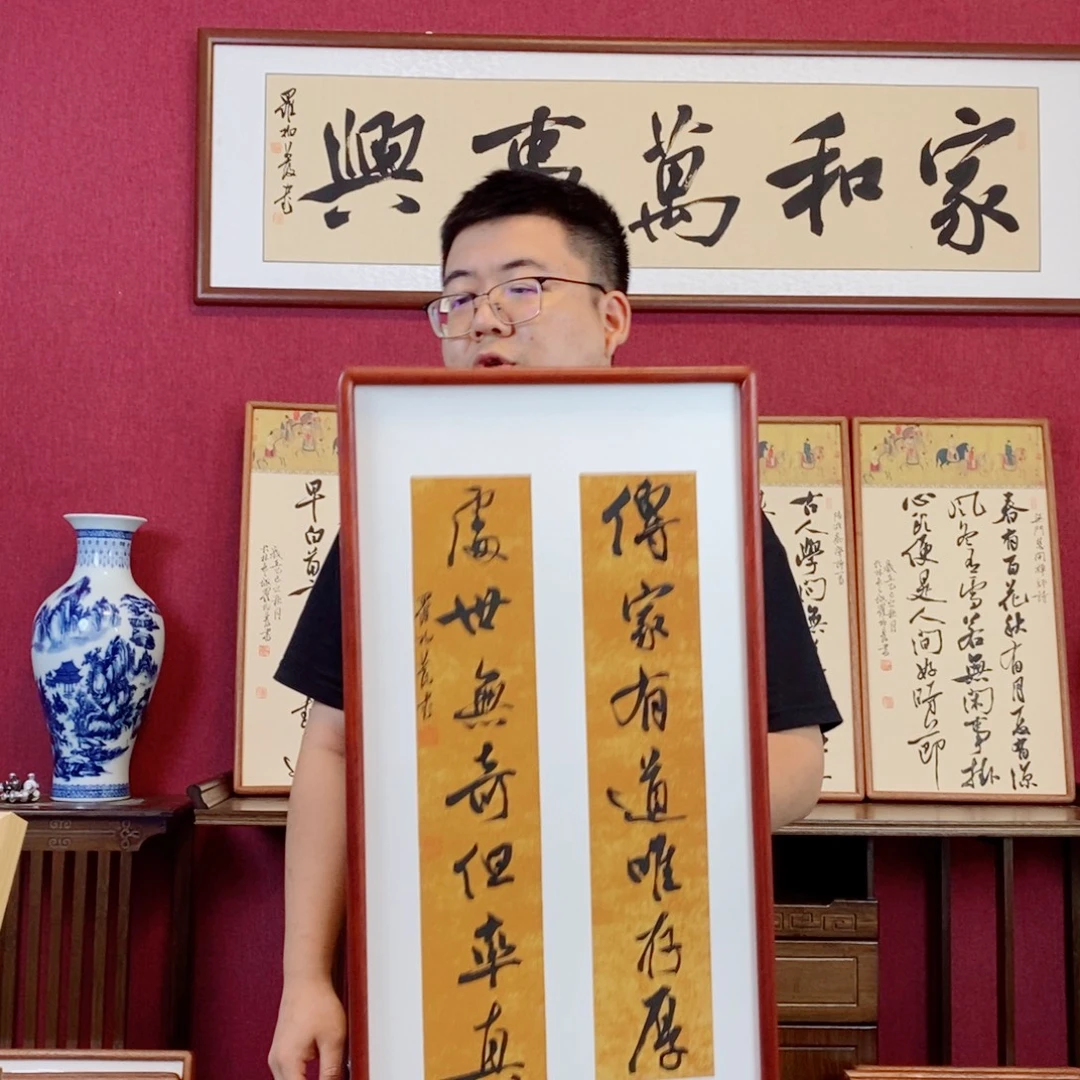 家和萬事興
傳家有道唯存厚
處世無奇但率真
春有百花秋有月夏有涼
風冬有雪若無閑事掛
心頭便是人間好時節
古人學問無
早白首